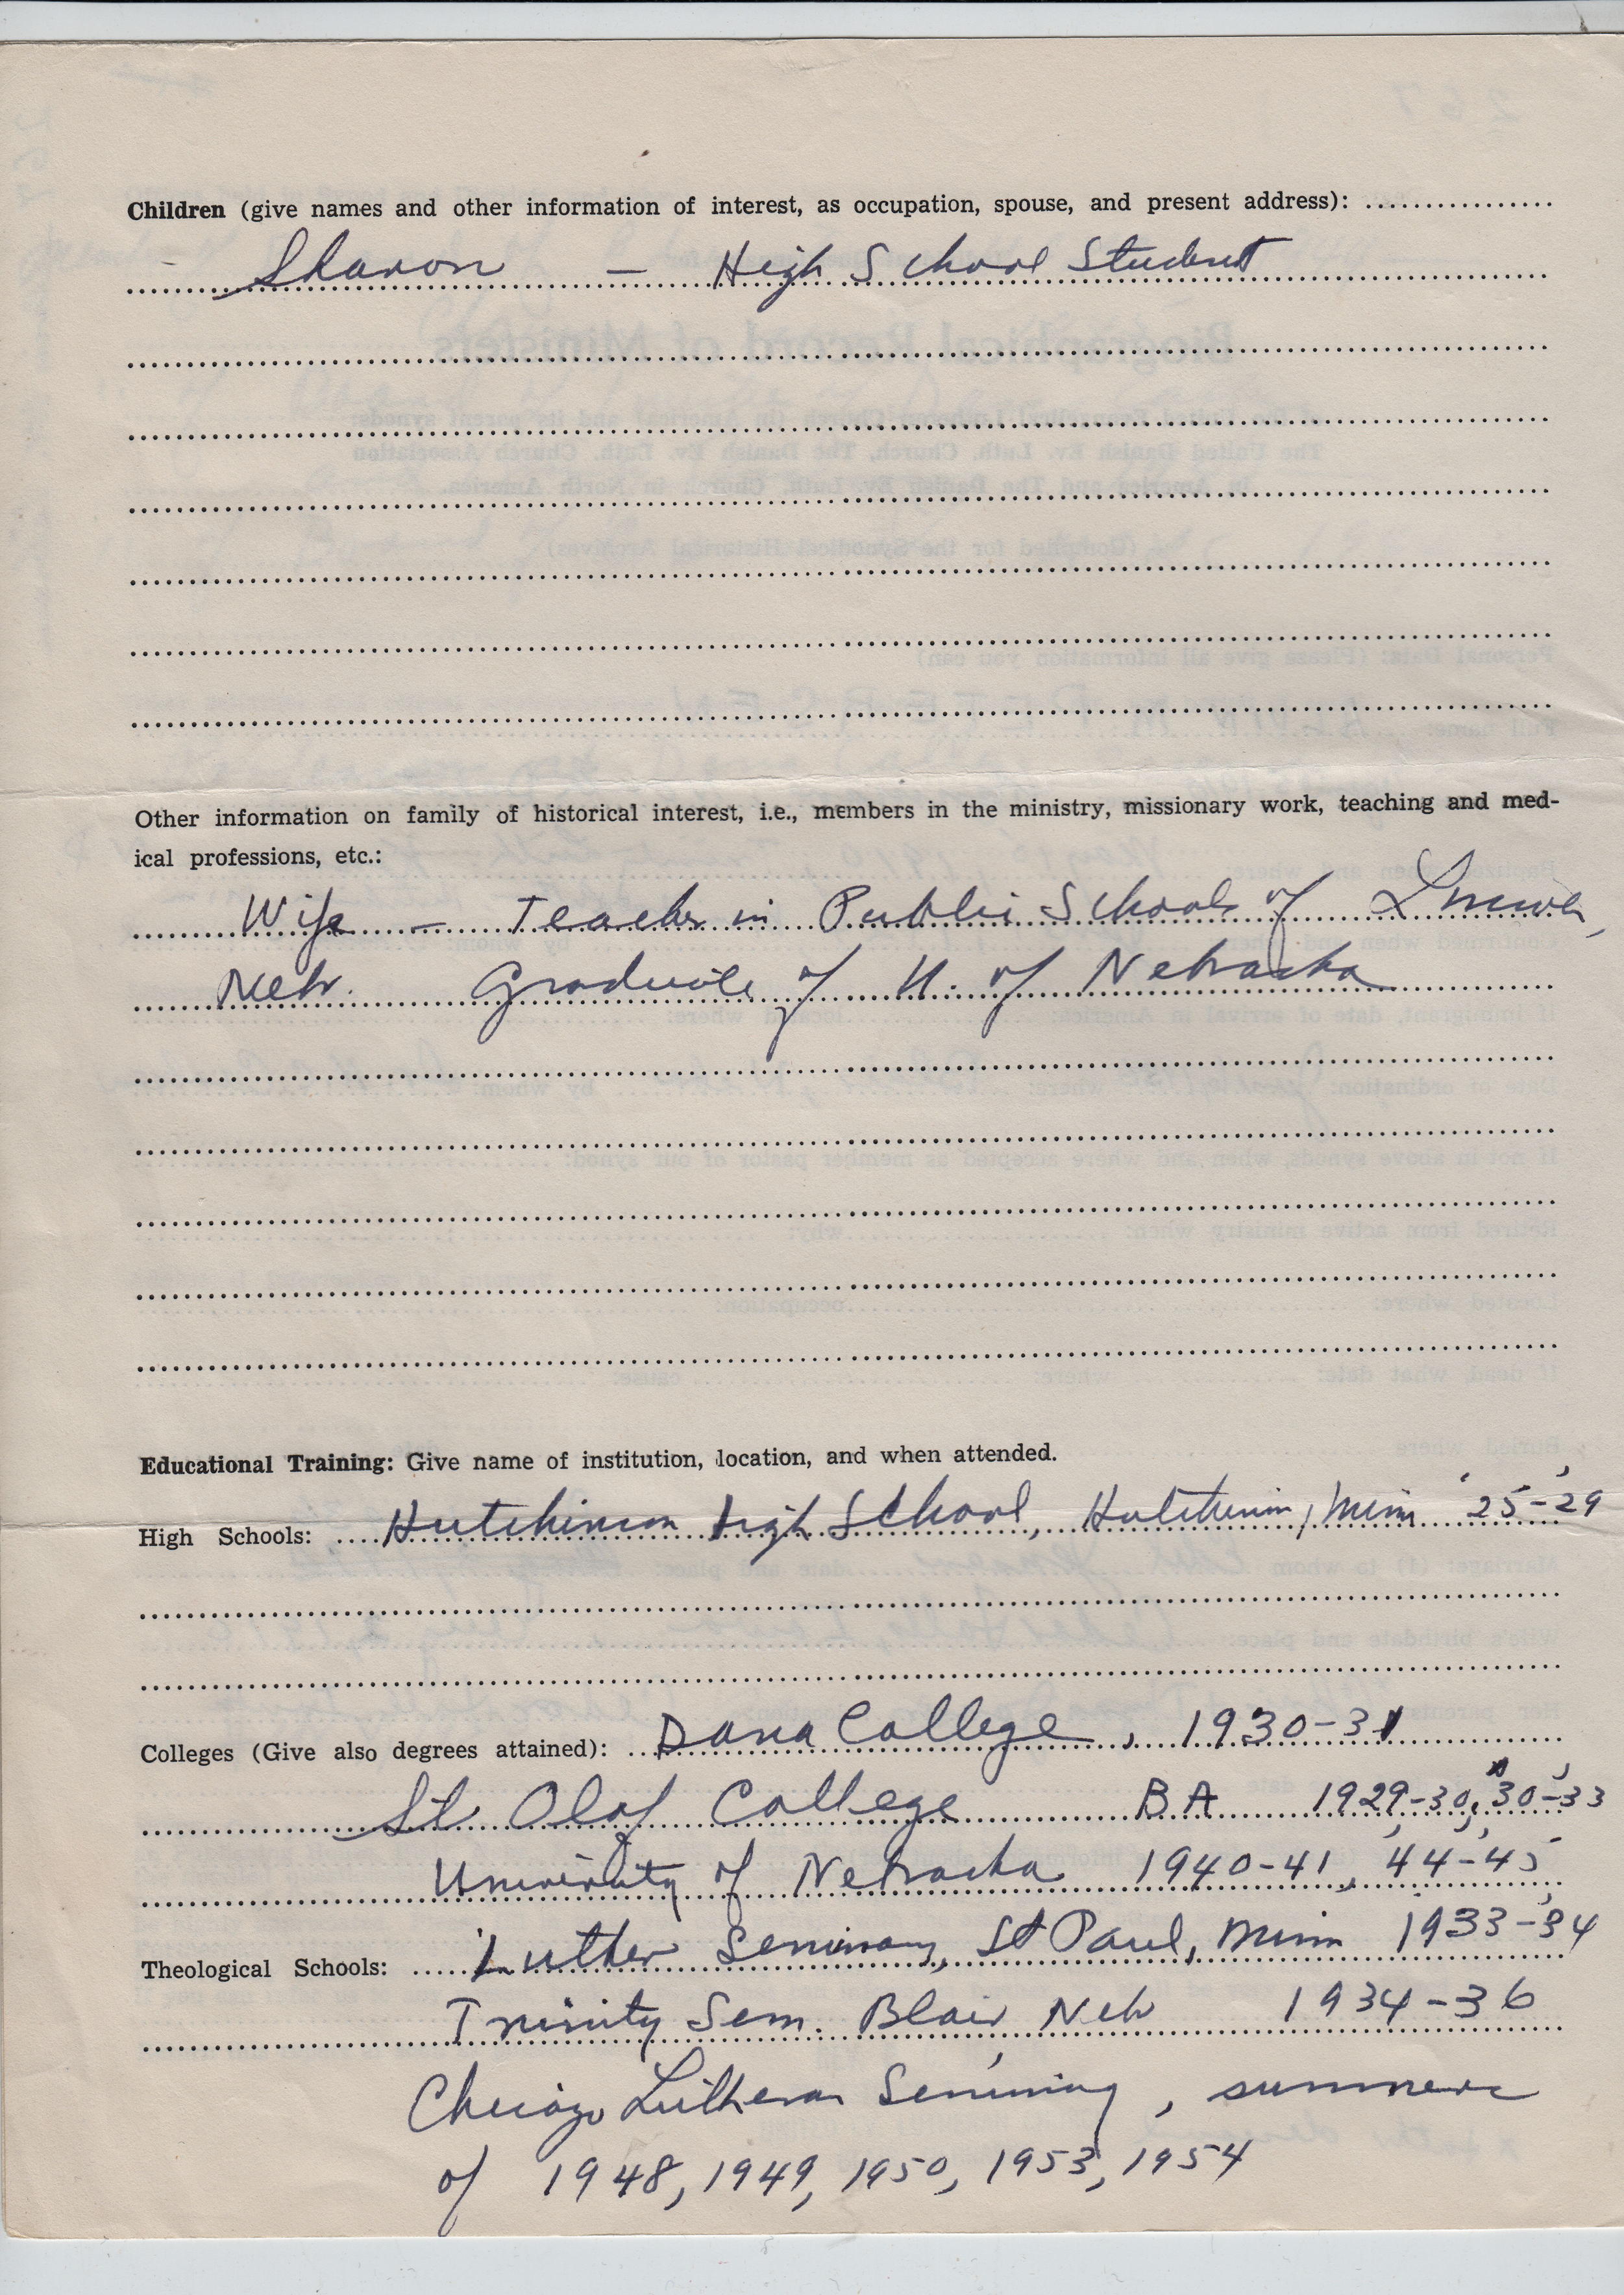 Children (give names and other information of interest, as occupation, spouse, and present address):
Sharon — High School Student
Other information on family of historical interest, i.e., members in the ministry, missionary work, teaching and med-
ical professions, etc.:
Wife — Teacher in Public Schools of
Nebr. Graduate of U. of Nebraska
Educational Training: Give name of institution, location, and when attended.
High Schools: Hutchinson High School, Hutchinson, Minn '25-'29
Colleges (Give also degrees attained): Dana College, 1930-31
St Olaf College BA 1929-30, '30-'33
University of Nebraska 1940-41, '44-'45
Theological Schools: Luther Seminary, St Paul, Minn 1933-'34
Trinity Sem. Blair Neb 1934-36
Chicago Lutheran Seminary, summers
of 1948, 1949, 1950, 1953, 1954